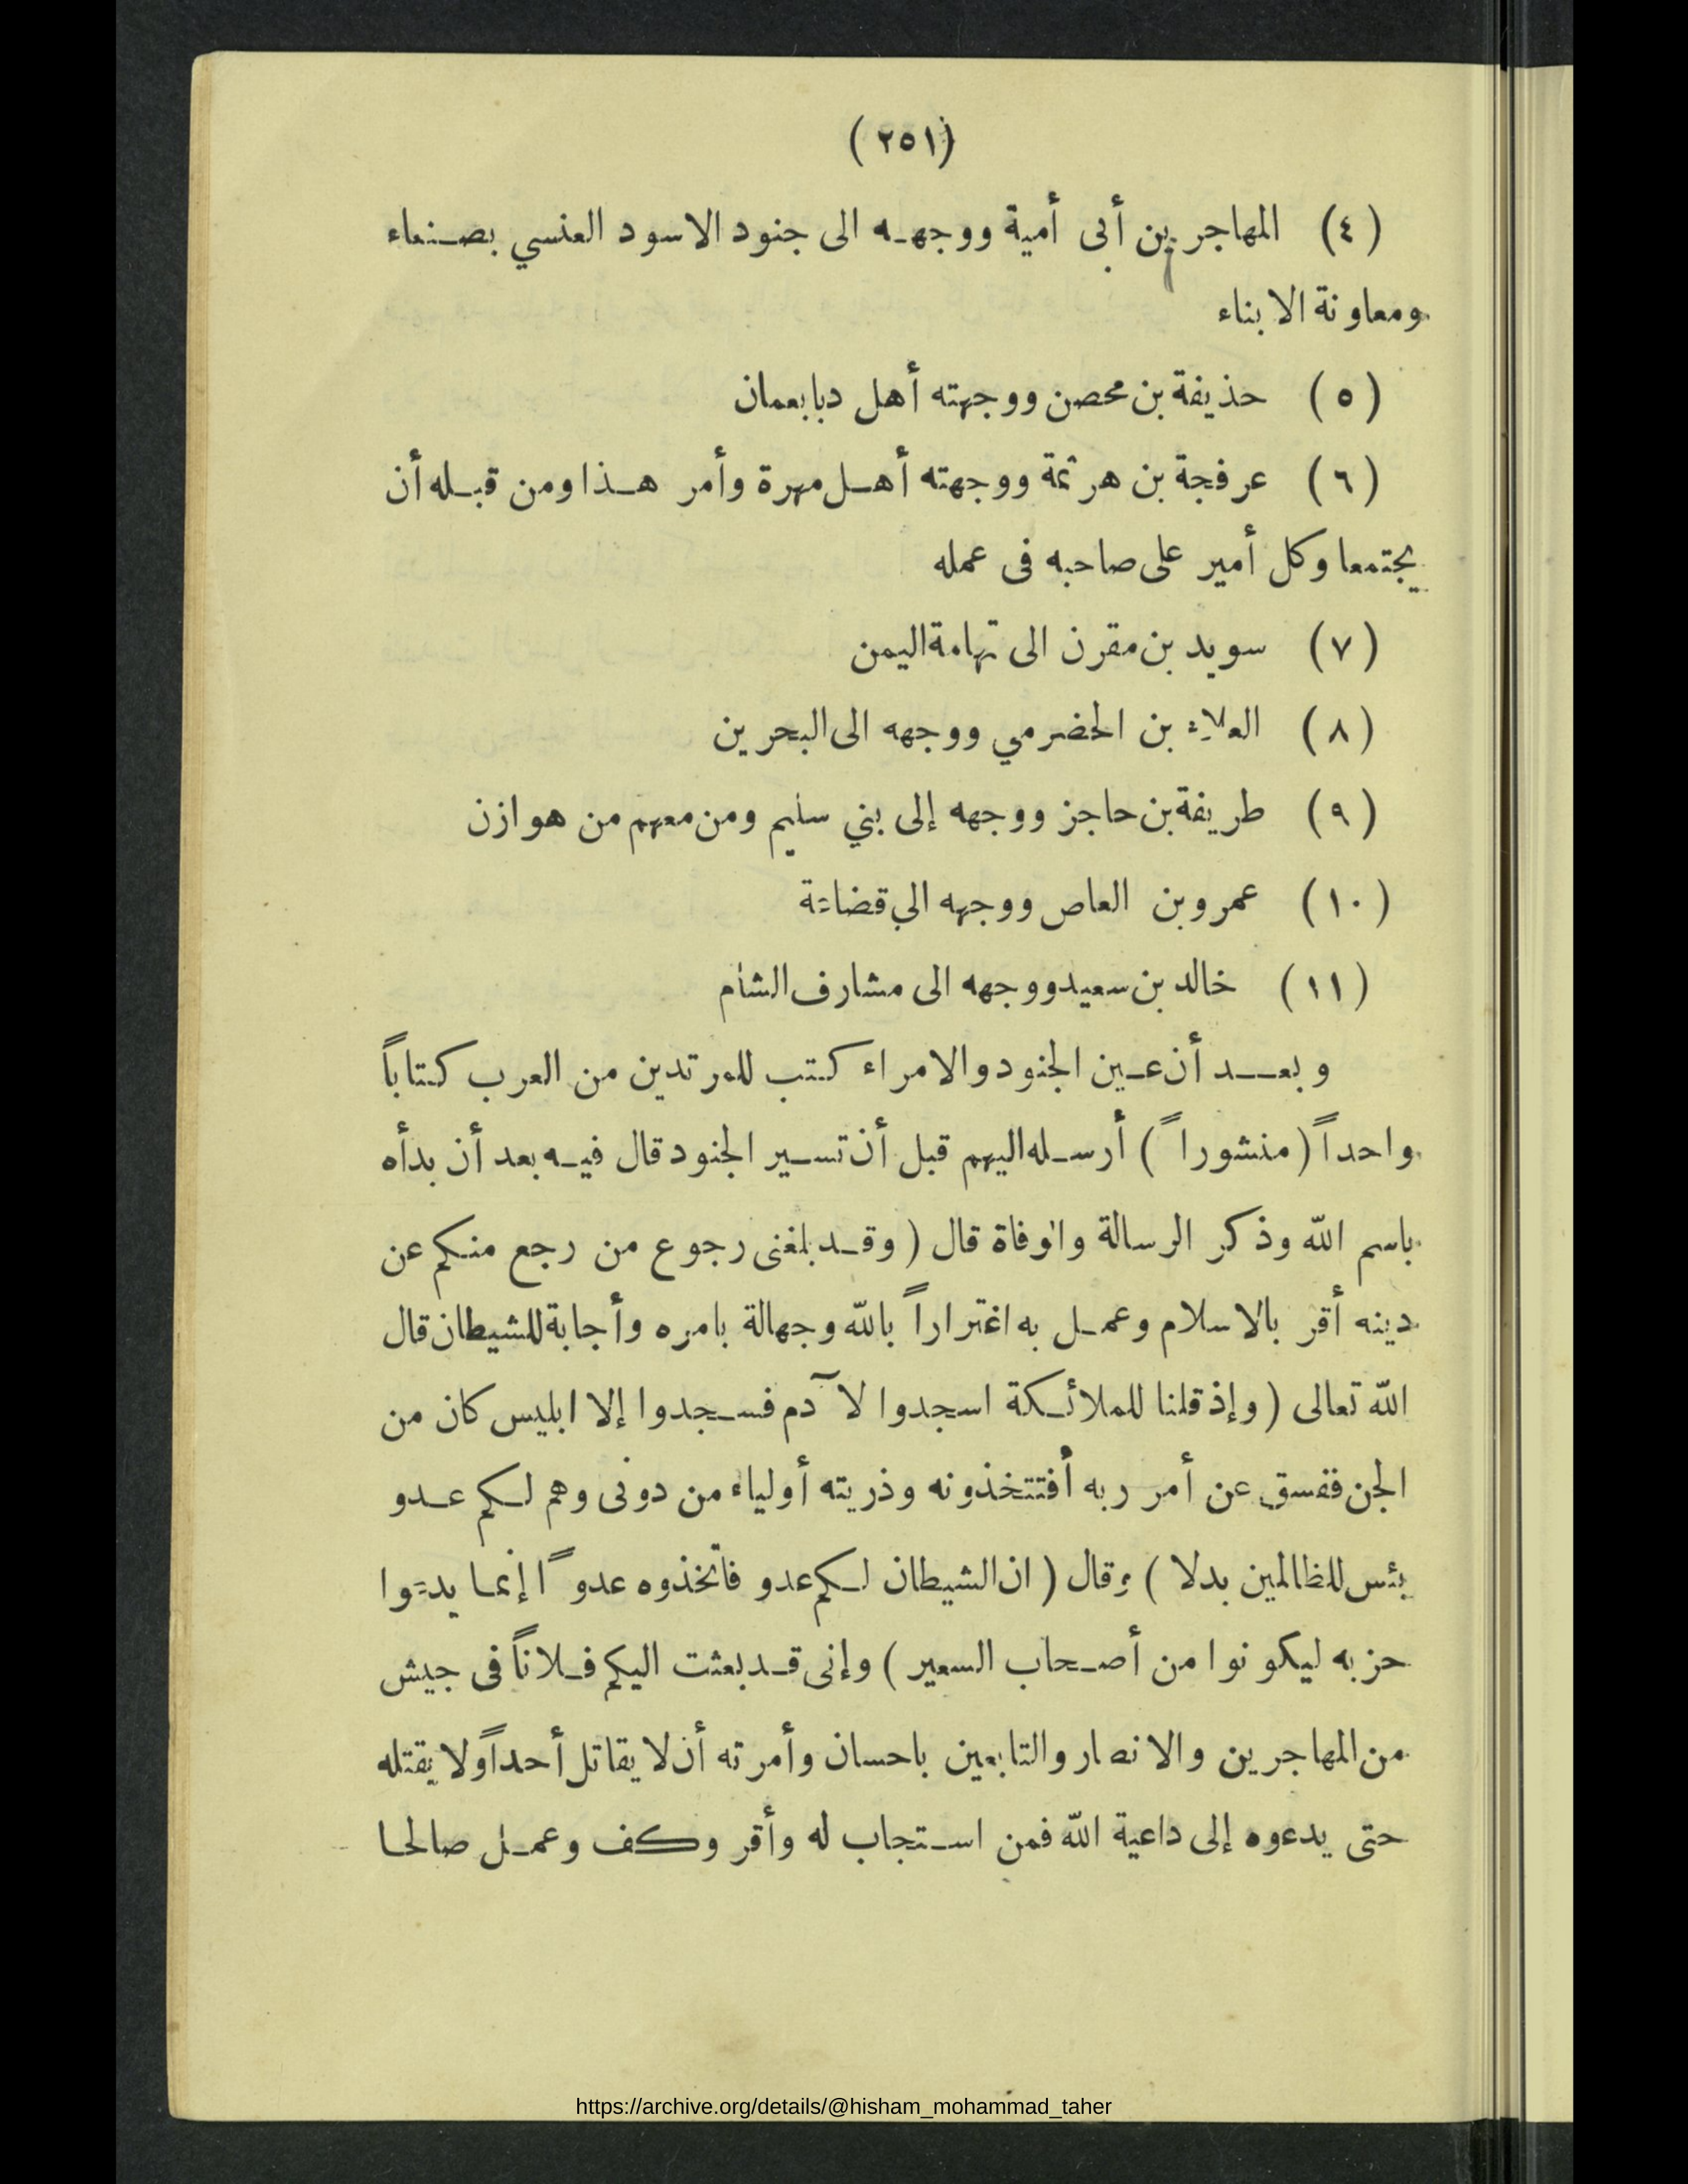 (٢٥١)
(٤) المهاجر بن أبى أمية ووجهه الى جنود الاسود العنسي بصنعاء
ومعاونة الابناء
(٥) حذيفة بن محصن ووجهته أهل دبا بعمان
(٦) عرفجة بن هرثمة ووجهته أهل مهرة وأمر هذا ومن قبله أن
يجتمعا وكل أمير على صاحبه فى عمله
(٧) سويد بن مقرن الى تهامة اليمن
(٨) العلاء بن الحضرمي ووجهه الى البحرين
(٩) طريفة بن حاجز ووجهه إلى بني سليم ومن معهم من هوازن
(١٠) عمرو بن العاص ووجهه الي قضاعة
(١١) خالد بن سعيد ووجهه الى مشارف الشأم
وبعد أن عين الجنود والامراء كتب للمرتدين من العرب كتاباً
واحداً (منشوراً) أرسله اليهم قبل أن تسير الجنود قال فيه بعد أن بدأه
باسم الله وذكر الرسالة والوفاة قال (وقد بلغنى رجوع من رجع منكم عن
دينه أقر بالاسلام وعمل به اغتراراً بالله وجهالة بامره وأجابة للشيطان قال
الله تعالى (وإذ قلنا للملائكة اسجدوا لآدم فسجدوا إلا ابليس كان من
الجن ففسق عن أمر ربه أفتتخذونه وذريته أولياء من دونى وهم لكم عدو
بئس للظالمين بدلا) وقال (ان الشيطان لكم عدو فاتخذوه عدوًا إنما يدعوا
حزبه ليكونوا من أصحاب السعير) وإنى قد بعثت اليكم فلاناً فى جيش
من المهاجرين والانصار والتابعين باحسان وأمرته أن لا يقاتل أحداً ولا يقتله
حتى يدعوه إلى داعية الله فمن استجاب له وأقر وكف وعمل صالحا
https://archive.org/details/@hisham_mohammad_taher